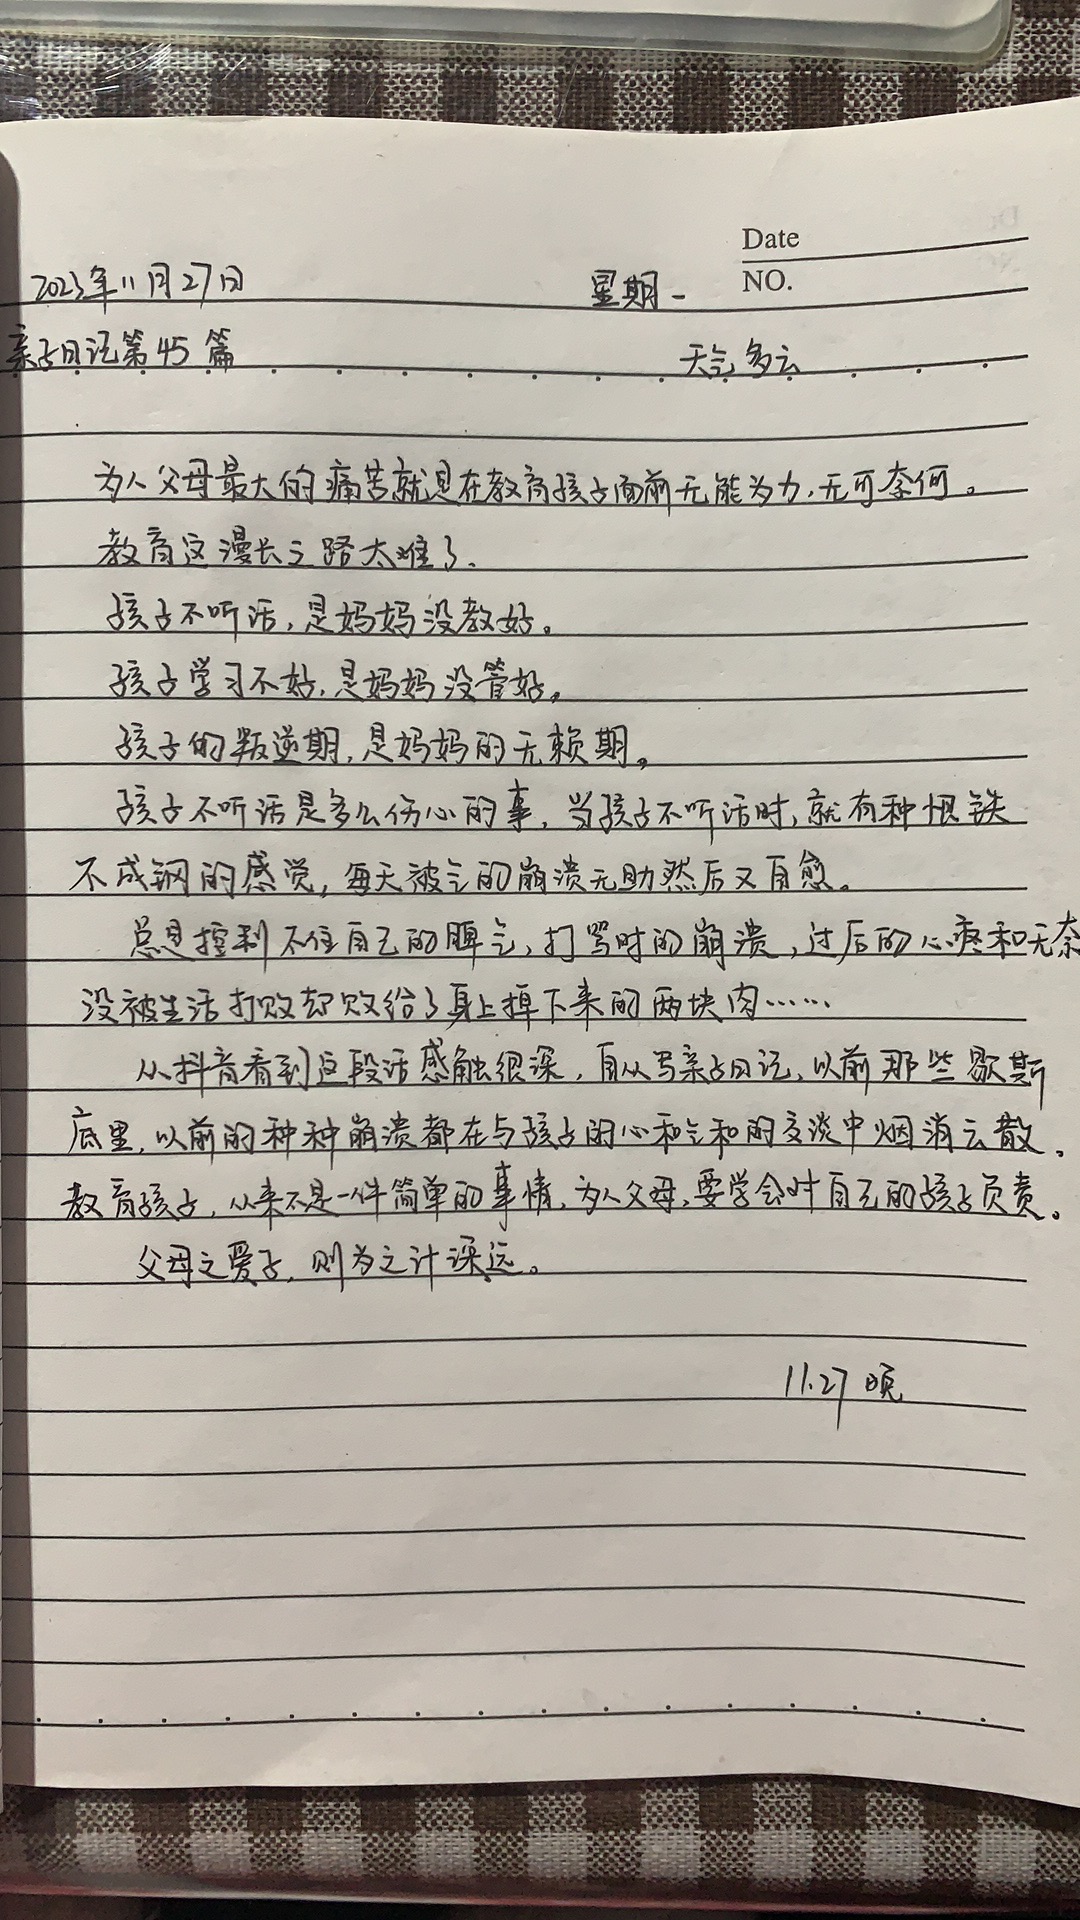 Date
2023年11月27日 星期一 NO.
亲子日记第45篇 天气多云
为人父母最大的痛苦就是在教育孩子面前无能为力,无可奈何。
教育这漫长之路太难了.
孩子不听话,是妈妈没教好。
孩子学习不好,是妈妈没管好。
孩子的叛逆期,是妈妈的无赖期。
孩子不听话是多么伤心的事,当孩子不听话时,就有种恨铁
不成钢的感觉,每天被气的崩溃无助然后又自愈。
总是控制不住自己的脾气,打骂时的崩溃,过后的心疼和无奈
没被生活打败却败给了身上掉下来的两块肉……
从抖音看到这段话感触很深,自从写亲子日记,以前那些歇斯
底里,以前的种种崩溃都在与孩子的心和气和的交谈中烟消云散。
教育孩子,从来不是一件简单的事情,为人父母,要学会对自己的孩子负责。
父母之爱子,则为之计深远。
11.27 晚